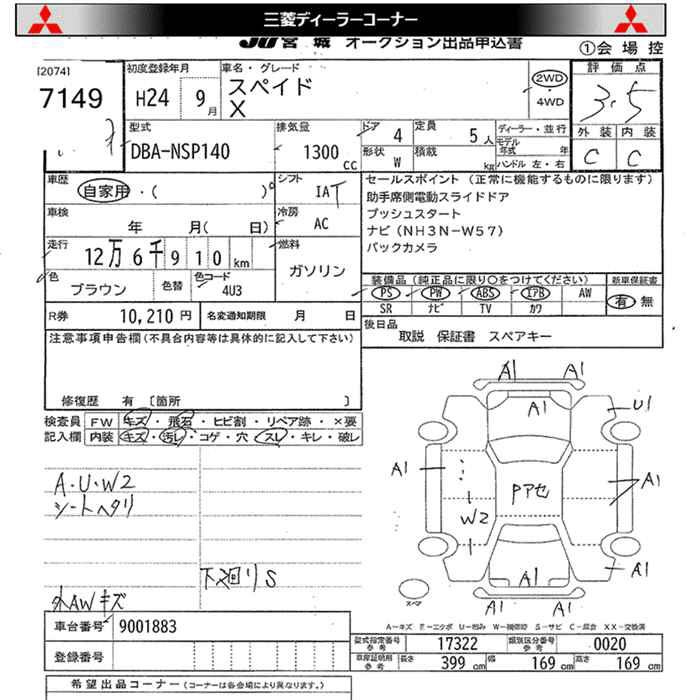 三菱ディーラーコーナー
JU宮城 オークション出品申込書
①会場控
[2074]
7149
初度登録年月
H24 9月
車名・グレード
スペイド
X
2WD
・
4WD
評価点
3.5
外装 内装
C C
型式
DBA-NSP140
排気量
1300 cc
ドア 4
形状 W
定員 5人
積載 kg
ディーラー・並行
モデル年式 年
ハンドル 左・右
車歴 自家用・( )
シフト IAT
車検 年 月(日)
冷房 AC
走行 12万6千910km
燃料 ガソリン
色 ブラウン 色替
色コード 4U3
R券 10,210円 名変通知期限 月 日
セールスポイント (正常に機能するものに限ります)
助手席側電動スライドドア
プッシュスタート
ナビ(NH3N-W57)
バックカメラ
装備品(純正品に限り〇をつけてください)
PS PW ABS エアB AW
SR ナビ TV カワ
新車保証書
有 無
後日品
取説 保証書 スペアキー
注意事項申告欄(不具合内容等は具体的に記入して下さい)
修復歴 有 〔箇所 〕
検査員記入欄
FW キズ・飛石・ヒビ割・リペア跡・×要
内装 キズ・汚レ・コゲ・穴・スレ・キレ・破レ
A・U・W2
シートヘタリ
下廻りS
外AWキズ
A1 A1
A1
U1
A1
A1
Pアセ
W2
A1
A1
A1 A1
スペア
A-キズ E-エクボ U-凹み W-補修跡 S-サビ C-腐食 XX-交換済
車台番号 9001883
登録番号
型式指定番号 参考 17322
類別区分番号 参考 0020
車庫証明用 参考 長さ 399cm 幅 169cm 高さ 169cm
希望出品コーナー(コーナーは各会場により異なります。)